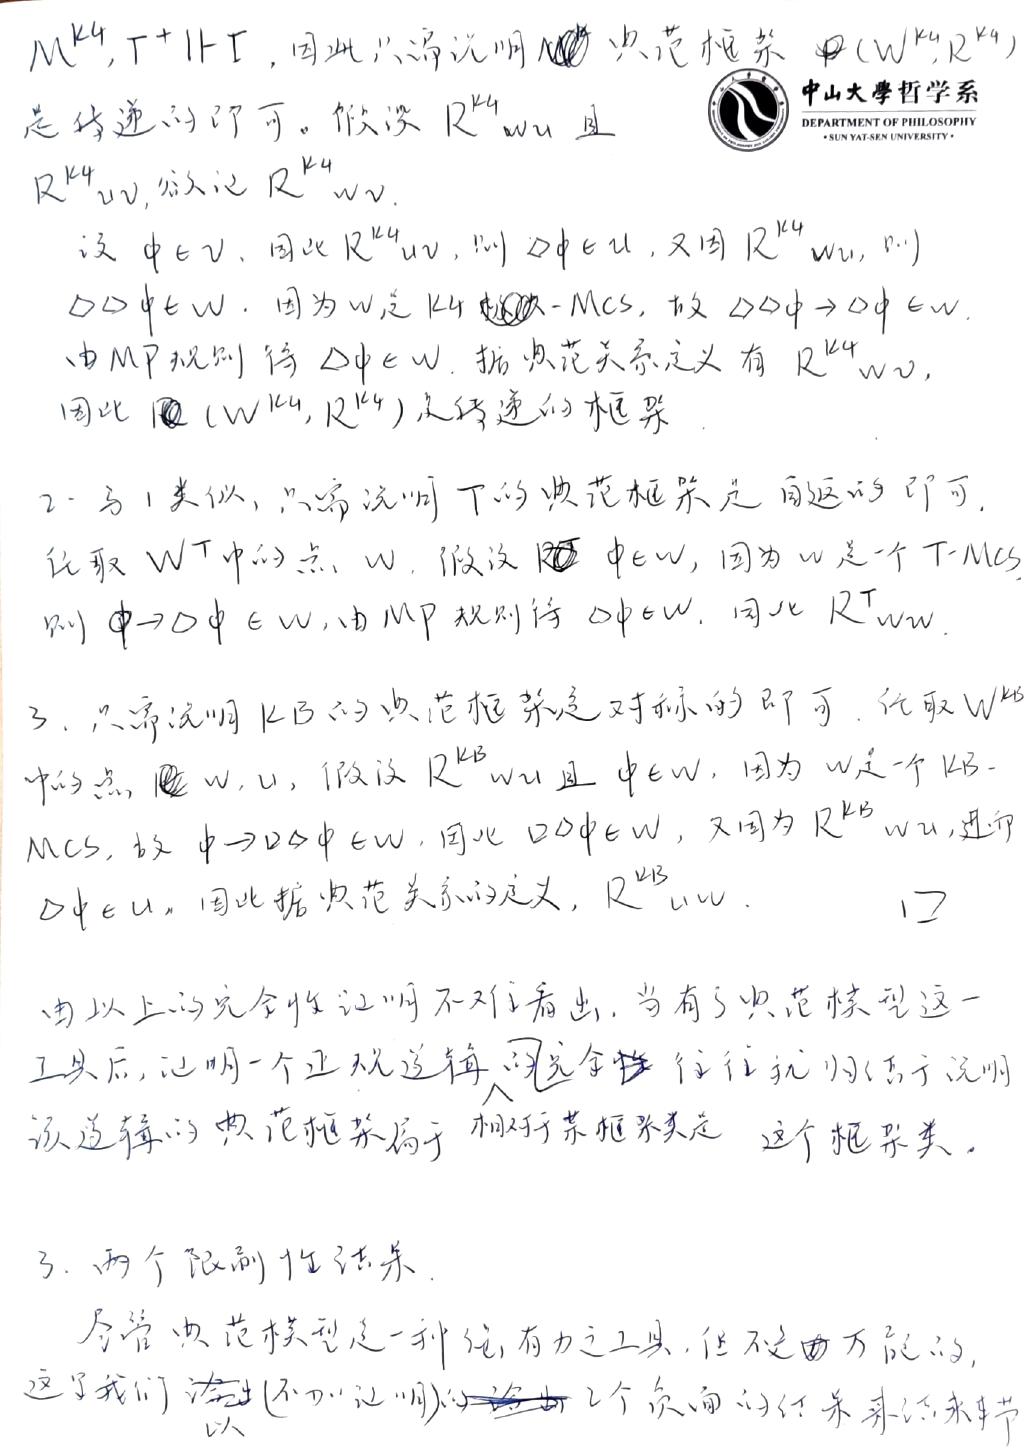 M^K4, Γ⁺ ⊩ Γ, 因此只需说明 典范框架 (W^K4, R^K4)
中山大學哲学系
DEPARTMENT OF PHILOSOPHY
·SUN YAT-SEN UNIVERSITY·
是传递的即可。假设 R^K4 wu 且
R^K4 uv, 欲证 R^K4 wv.
设 φ∈v, 因此 R^K4 uv, 则 ◇φ∈u, 又因 R^K4 wu, 则
◇◇φ∈w. 因为w是 K4 -MCS, 故 ◇◇φ→◇φ∈w.
由MP规则得 ◇φ∈w. 据典范关系定义有 R^K4 wv,
因此 (W^K4, R^K4) 是传递的框架.
2. 与1类似, 只需说明 T的典范框架是自返的即可.
任取 W^T中的点 w. 假设 φ∈w, 因为 w 是一个 T-MCS,
则 φ→◇φ∈w, 由MP规则得 ◇φ∈w. 因此 R^T ww.
3. 只需说明KB的典范框架是对称的即可. 任取W^KB
中的点 w, u, 假设 R^KB wu 且 φ∈w, 因为 w是一个KB-
MCS, 故 φ→□◇φ∈w, 因此 □◇φ∈w, 又因为 R^KB wu, 进而
◇φ∈u. 因此据典范关系的定义, R^KB uw. □
由以上的完全性证明不难看出, 当有了典范模型这一
工具后, 证明一个正规逻辑 相对于某框架类是 的完全性 往往就归结于说明
该逻辑的典范框架属于 这个框架类.
3. 两个限制性结果.
尽管典范模型是一种强有力之工具, 但不是万能的,
这里我们 以 (不加证明)的 2个负面的结果来结束本节